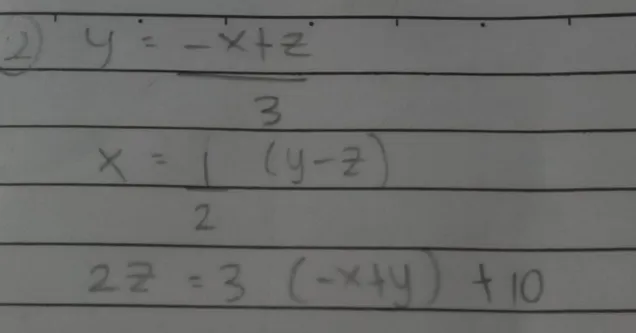 2) y = -x+z/3
x = 1/2 (y-z)
2z = 3 (-x+y) + 10